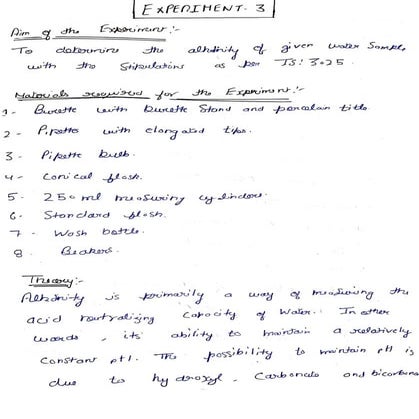 EXPERIMENT- 3
Aim of the Experiment:-
To determine the alkalinity of given water sample
with the Stipulations as per IS: 3025
Materials required for the Experiment:-
1- Burette with burette Stand and porcelain title
2- Pipette with elongated tips.
3- Pipette bulb.
4- Conical flask.
5. 250 ml measuring cylinders.
6- Standard flask.
7- Wash bottle.
8. Beakers.
Theory:-
Alkalinity is primarily a way of measuring the
acid neutralizing capacity of Water. In other
words, its ability to maintain a relatively
constant pH. The possibility to maintain pH is
due to hydroxyl, Carbonate and bicarbona